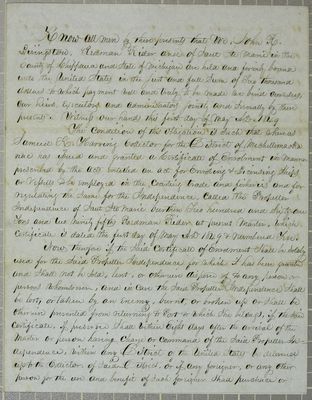 Know all men by these presents that We, John R.
Livingston, Redman Rider all of Saut Ste Marie in the
County of Chippawa and State of Michigan are held and firmly bound
unto the United States in the Just and full Sum of five thousand
dollars to which payment well and truly to be made we bind ourselves
our heirs, executors and administrators jointly and severally by these
presents. Witness our hands this first day of May
The Condition of this Obligation is Such that whereas
Samuel K. Haring Collector for the District of Michilimackinac
has issued and granted a Certificate of Enrolment in manner
prescribed by the act entitled an act for Enrolling & Licensing Ships
or Vessels to be employed in the Coasting trade and fisheries and for
regulating the Same for the Independence, Called The Propeller
Independence of Saut Ste Marie burthen Two hundred and Sixty one
Tons and Redman Riders at present Master, which
Certificate is dated the first day of May
Now therefore if the Said Certificate of Enrolment Shall
used for the Said Propeller Independence for which it has been granted
and Shall not be Sold, lent, or otherwise disposed of to any person or
persons whomsoever, and in case the Said Propeller Independence Shall
be lost, or taken by an enemy, burnt, or broken up or Shall be
otherwise prevented from returning to Port to which She belongs, if the Said
Certificate, if preserved Shall within Eight days after the arrival of the
Master or person having Charge or Command of the Said Propeller In-
dependence, within any District of the United States be delivered
up to the Collector of Said District, or if any foreigner, or any other
person for the use and benefit of Such foreigner Shall purchase or